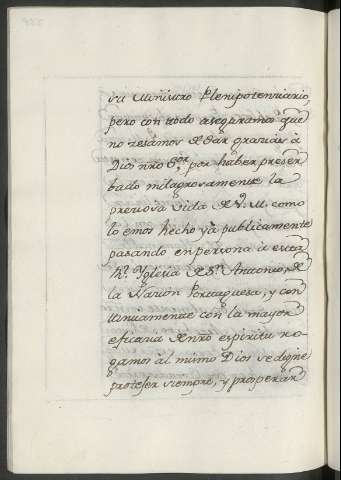 su Ministro Plenipotenciario,
pero con todo aseguramos que
no cesamos de dar gracias à
Dios nro Sor. por haber preser
bado milagrosamente la
preciosa Vida de V. M. como
lo emos hecho yà publicamente
pasando en persona à esta
Rl. Yglesia de Sn. Antonio, de
la Nacion Portuguesa, y con
tinuamente con la mayor
eficacia de nro espiritu ro-
gamos àl mismo Dios se digne
protejer siempre, y prosperar